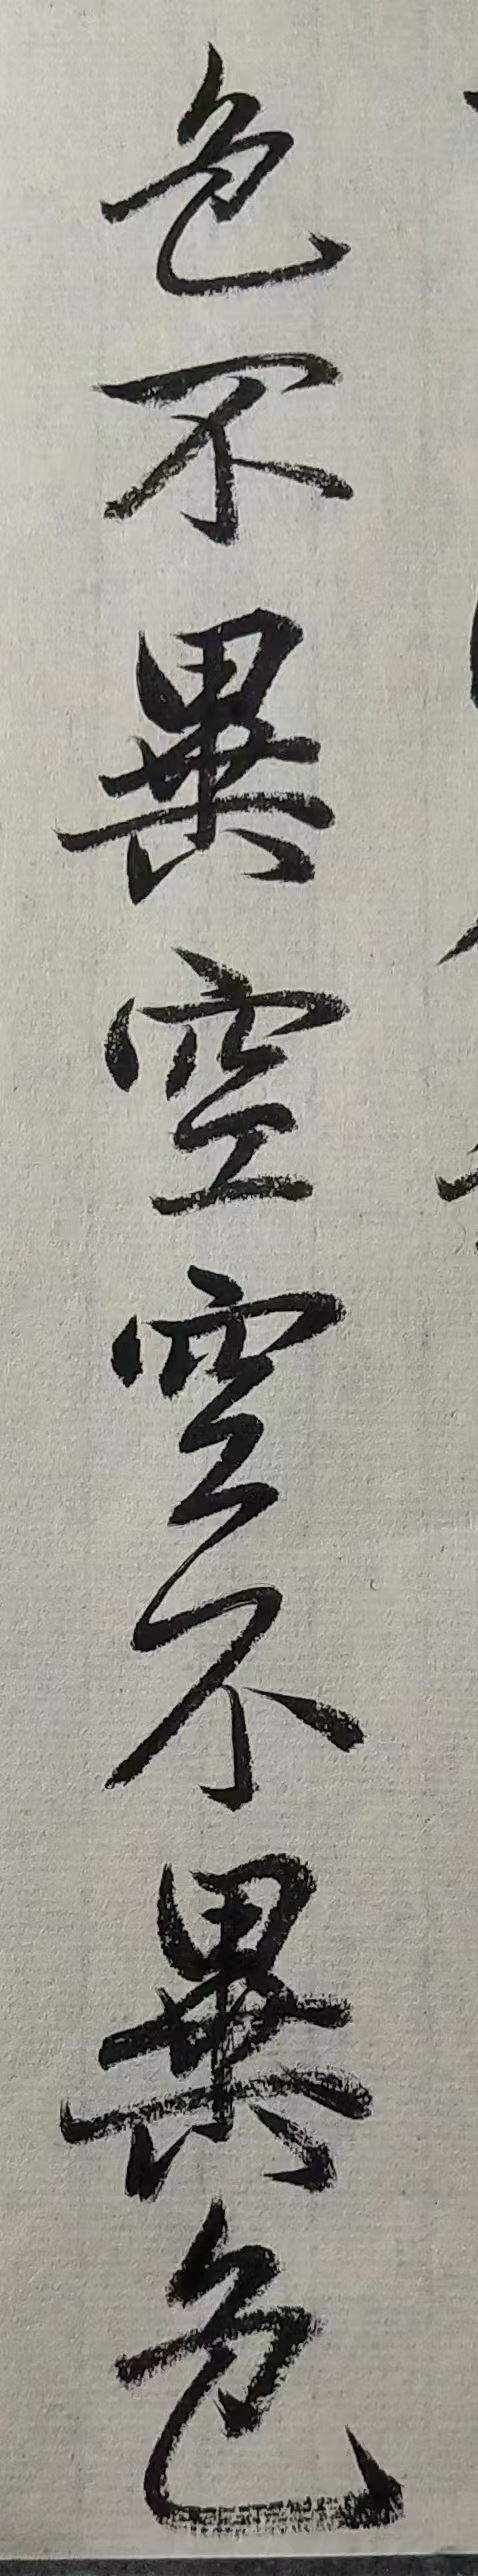 色不異空空不異色